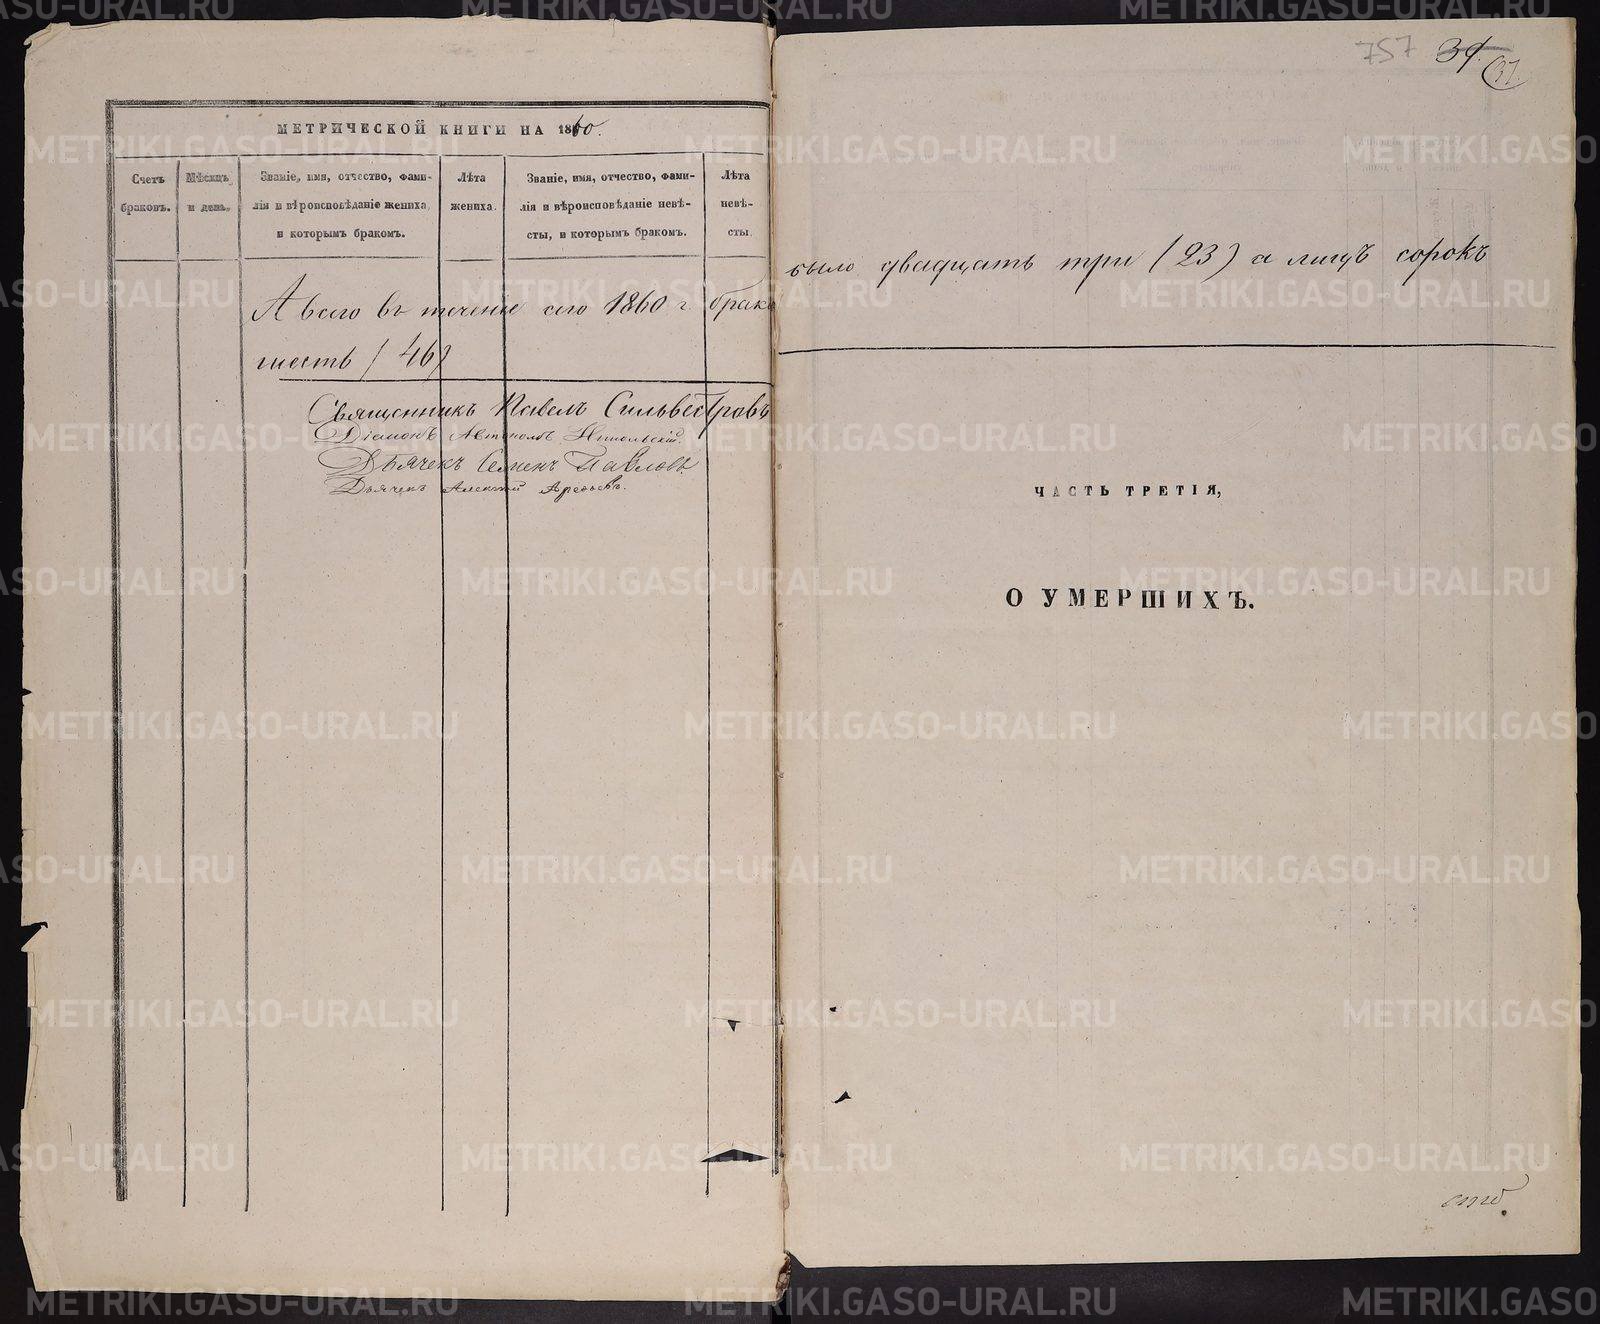 МЕТРИЧЕСКОЙ КНИГИ НА 1860.
Счетъ браковъ.
Мѣсяцъ и день.
Званіе, имя, отчество, фамилія и вѣроисповѣданіе жениха, и которымъ бракомъ.
Лѣта жениха.
Званіе, имя, отчество, фамилія и вѣроисповѣданіе невѣсты, и которымъ бракомъ.
Лѣта невѣсты.
А всего въ теченіе сего 1860 г. брако
шесть (46)
Священникъ Павелъ Сильвестровъ
Діаконъ Никольскій.
Дьячекъ Семенъ Павловъ
Дьячекъ Алексѣй
757 37.
было двадцать три (23) а лицъ сорокъ
ЧАСТЬ ТРЕТІЯ,
О УМЕРШИХЪ.
METRIKI.GASO-URAL.RU